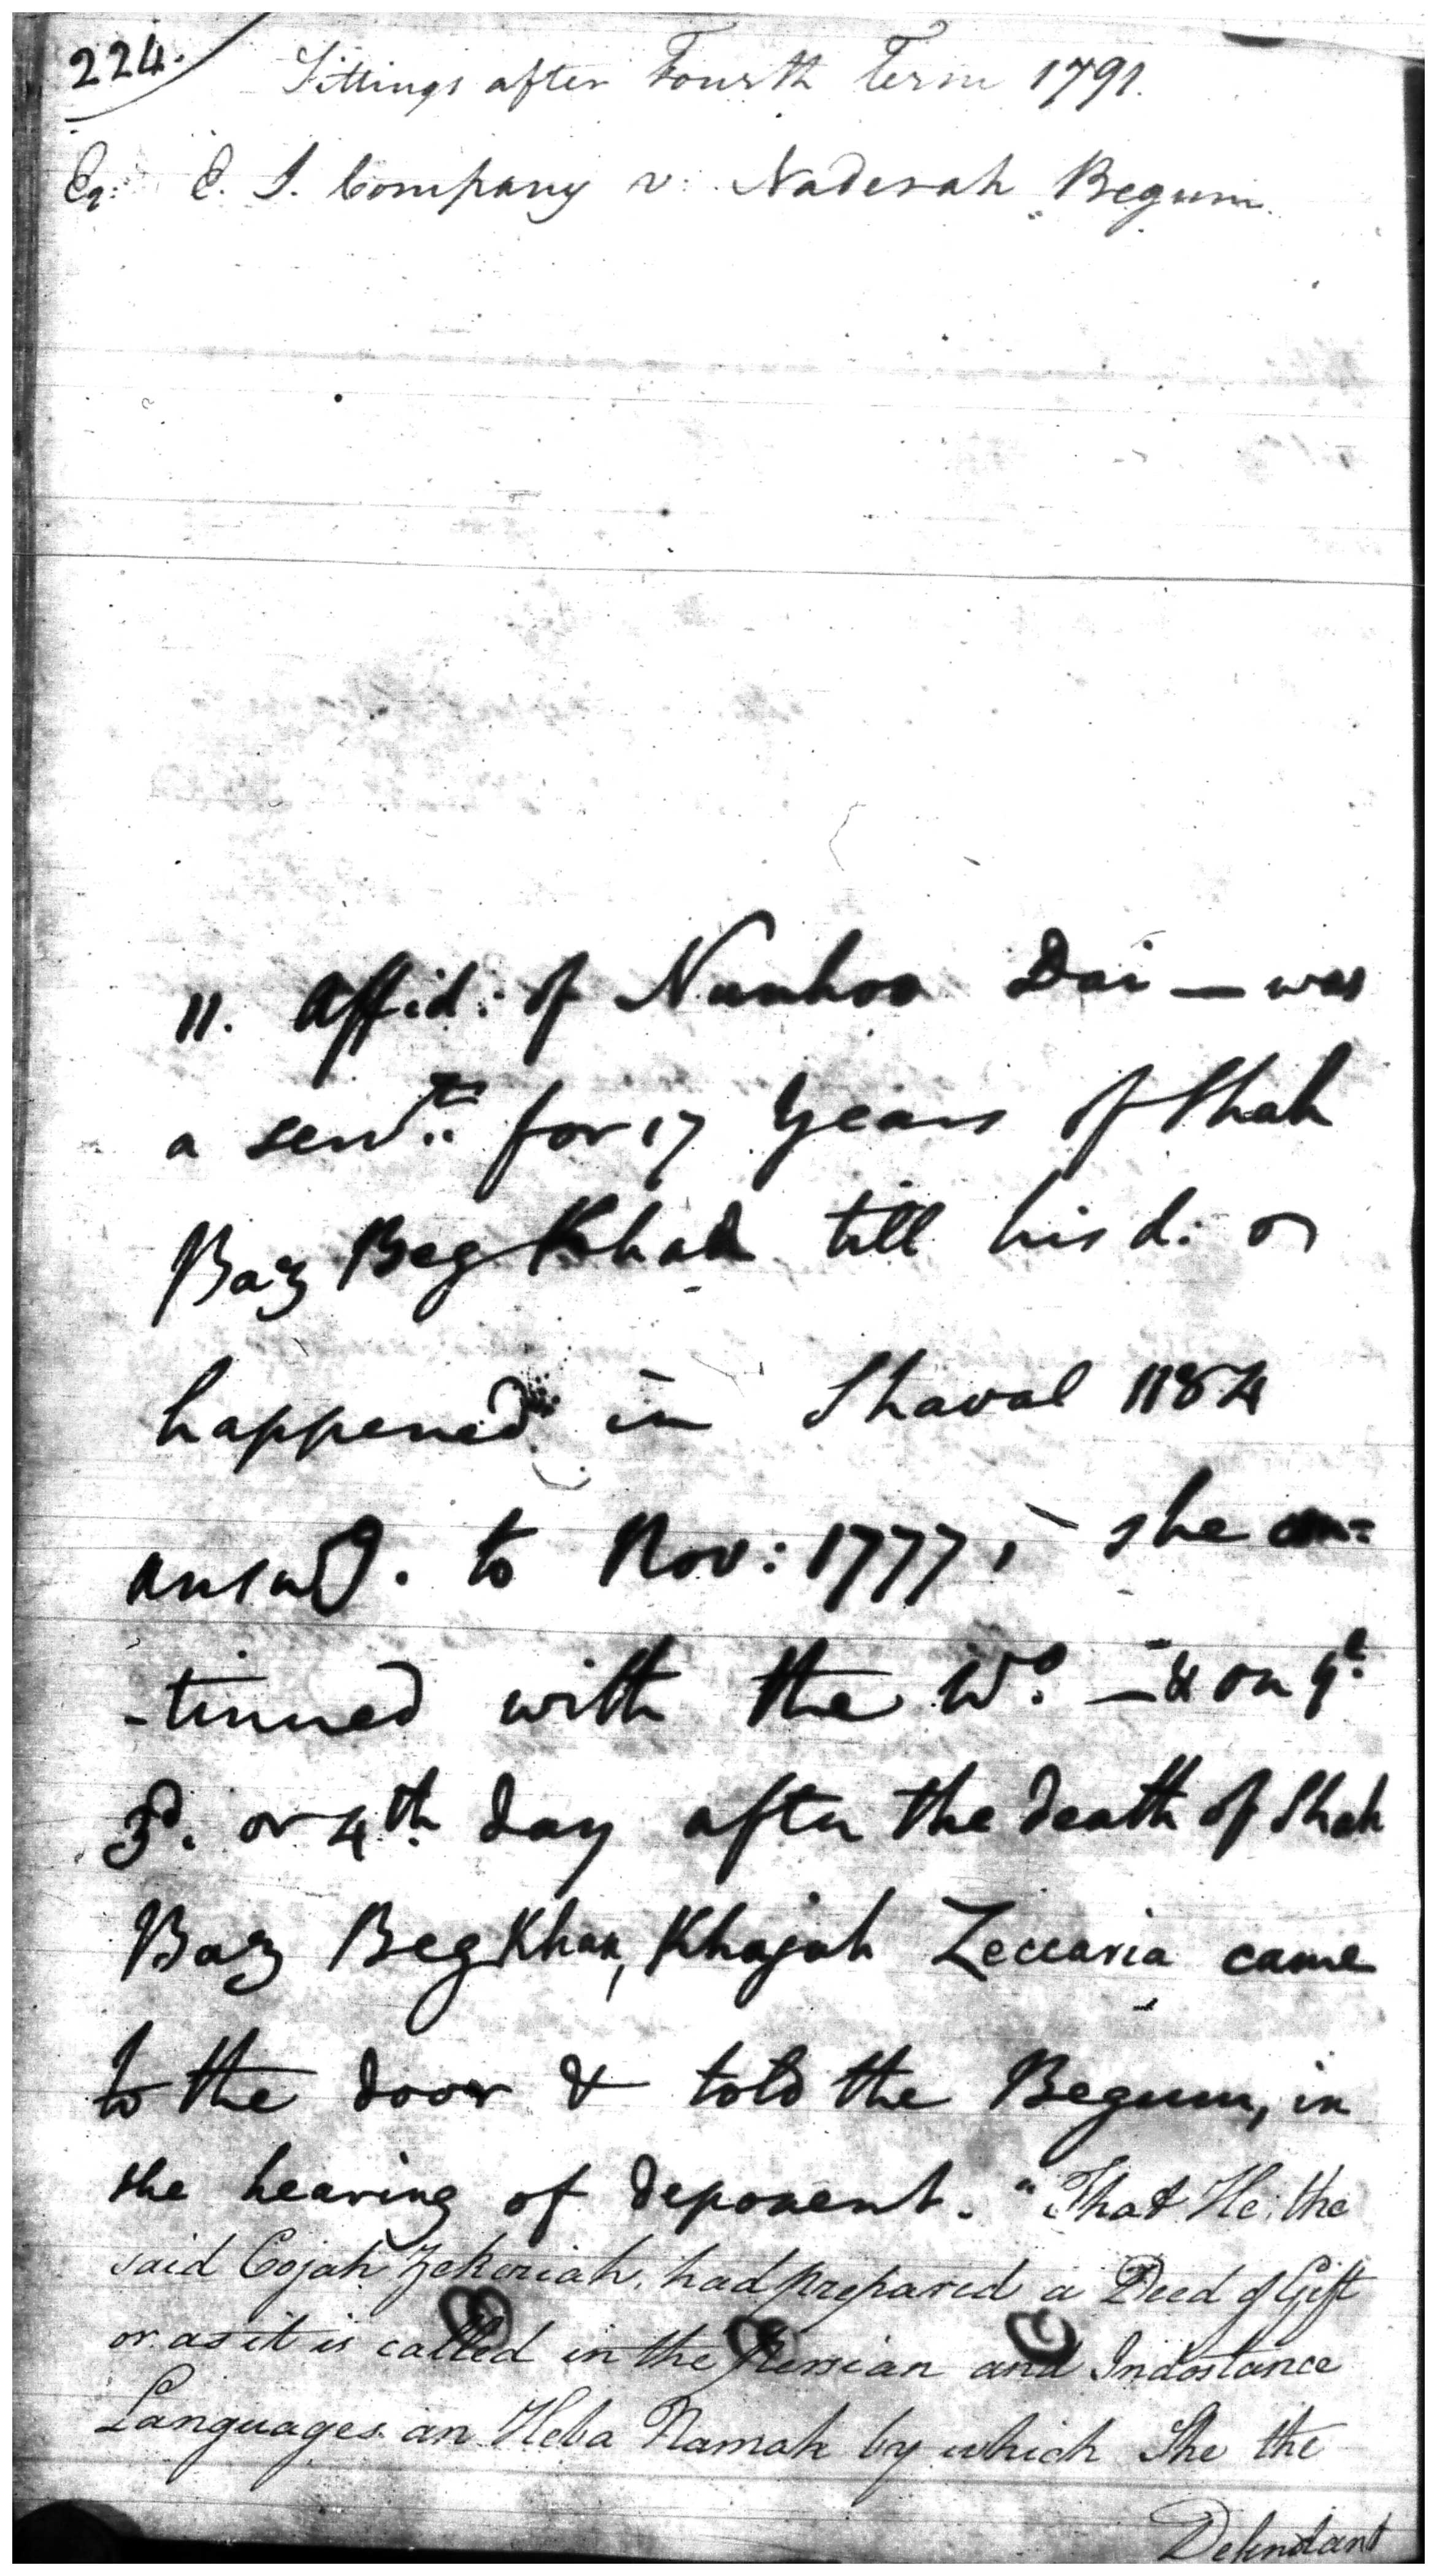 224.
Sittings after Fourth Term 1791.
Eq: E. I. Company v: Naderah Begum.
11. Affid: of Nunhoo Dai — was
a servt. for 17 Years of Shah
Baz Beg Khan till his d:
happened in Shaval 1184
answg. to Nov: 1777, she con=
-tinued with the Wo. — & on ye
3d. or 4th day after the death of Shah
Baz Beg Khan, Khajah Zeccaria came
to the door & told the Begum, in
the hearing of deponent. "That He, the
said Cojah Zekeriah, had prepared a Deed of Gift
or as it is called in the Persian and Indostance
Languages an Heba Namah by which She the
Defendant